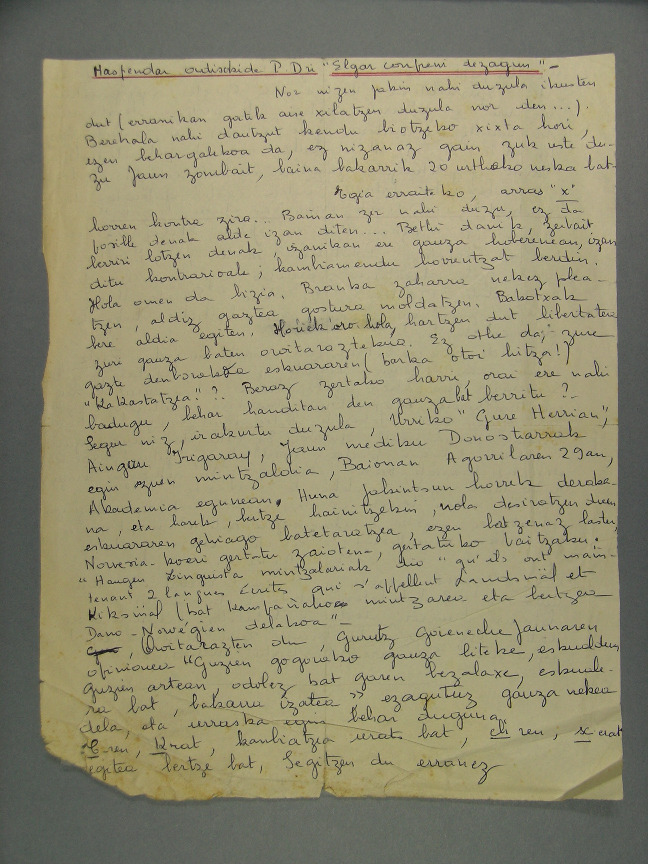 Haspendar ontiscide P. Dri "Elgar comprem dezagun" -
Nor nizen jakin nahi duzula ikusten
dut (erranikan gatik aise xilatzen duzula nor den...).
Berehala nahi dautzut kendu biotzeko xixta hori,
ezen behargabekoa da, ez nizanaz gain zuk uste du-
zu Jaun zombait, baina bakarrik 20 urtheko neska bat-
Egia erraiteko, arras "x"
horren kontra zira... Bainan zer nahi duzu, ez da
posille denak alde izan diten... Bethi danik, zerbait
berriri lotzen denak, izanikan ere gauza hoberenean, izan
ditu kontrarioak; kambiamendu horrentzat berdin.
Hola omen da bizia. Branka zaharra nekez plea-
tzen, aldiz gaztea gostura moldatzen. Bakotxak
bere aldia egiten. Horiek oro hola, hartzen dut libertatea
zuri gauza baten orvitarazteko. Ez othe da, zure
gazte denborak eskuararen (barka otoi hitza!)
"Kakastatzea"?? Beraz zertako harri, orai ere nahi
badugu, behar handitan den gauza bat berritu?-
Segur niz, irakurtu duzula, Urriko "Gure Herrian",
Aingeru Irigaray, Jaun mediku Donostiarrak
egin zuen mintzaldia, Baionan Agorrilaren 29an,
Akademia egunean. Huna jakintsun horrek deraka-
na, eta hark, bertze hainitzekin, nola desiratzen duen
eskuararen gehiago batetaratzea, ezen bertzenaz laster,
Norvesia-koeri gertatu zaioten-, gertatuko baitzaku.
"Haugen linguista mintzalariak dio "qu'ils ont main-
tenant 2 langues écrites qui s'appellent Landsmäl et
Riksmäl (bat kampañakoa mintzarea eta bertzea
Dano-Norwégien delakoa"-
Orvitarazten du, Gurutz Goieneche Jaunaren
opinionea "Guzien gogorako gauza liteke, eskualdun
guzien artean odolez bat garen bezalaxe, eskuale-
ra bat, bakarra izatea" ezagutuz gauza nekea
dela, eta urraska egin behar duguna.
C-ren, K-rat, kambiatzea urats bat, ch ren, x-erat
egitea bertze bat, Segitzen du erranez